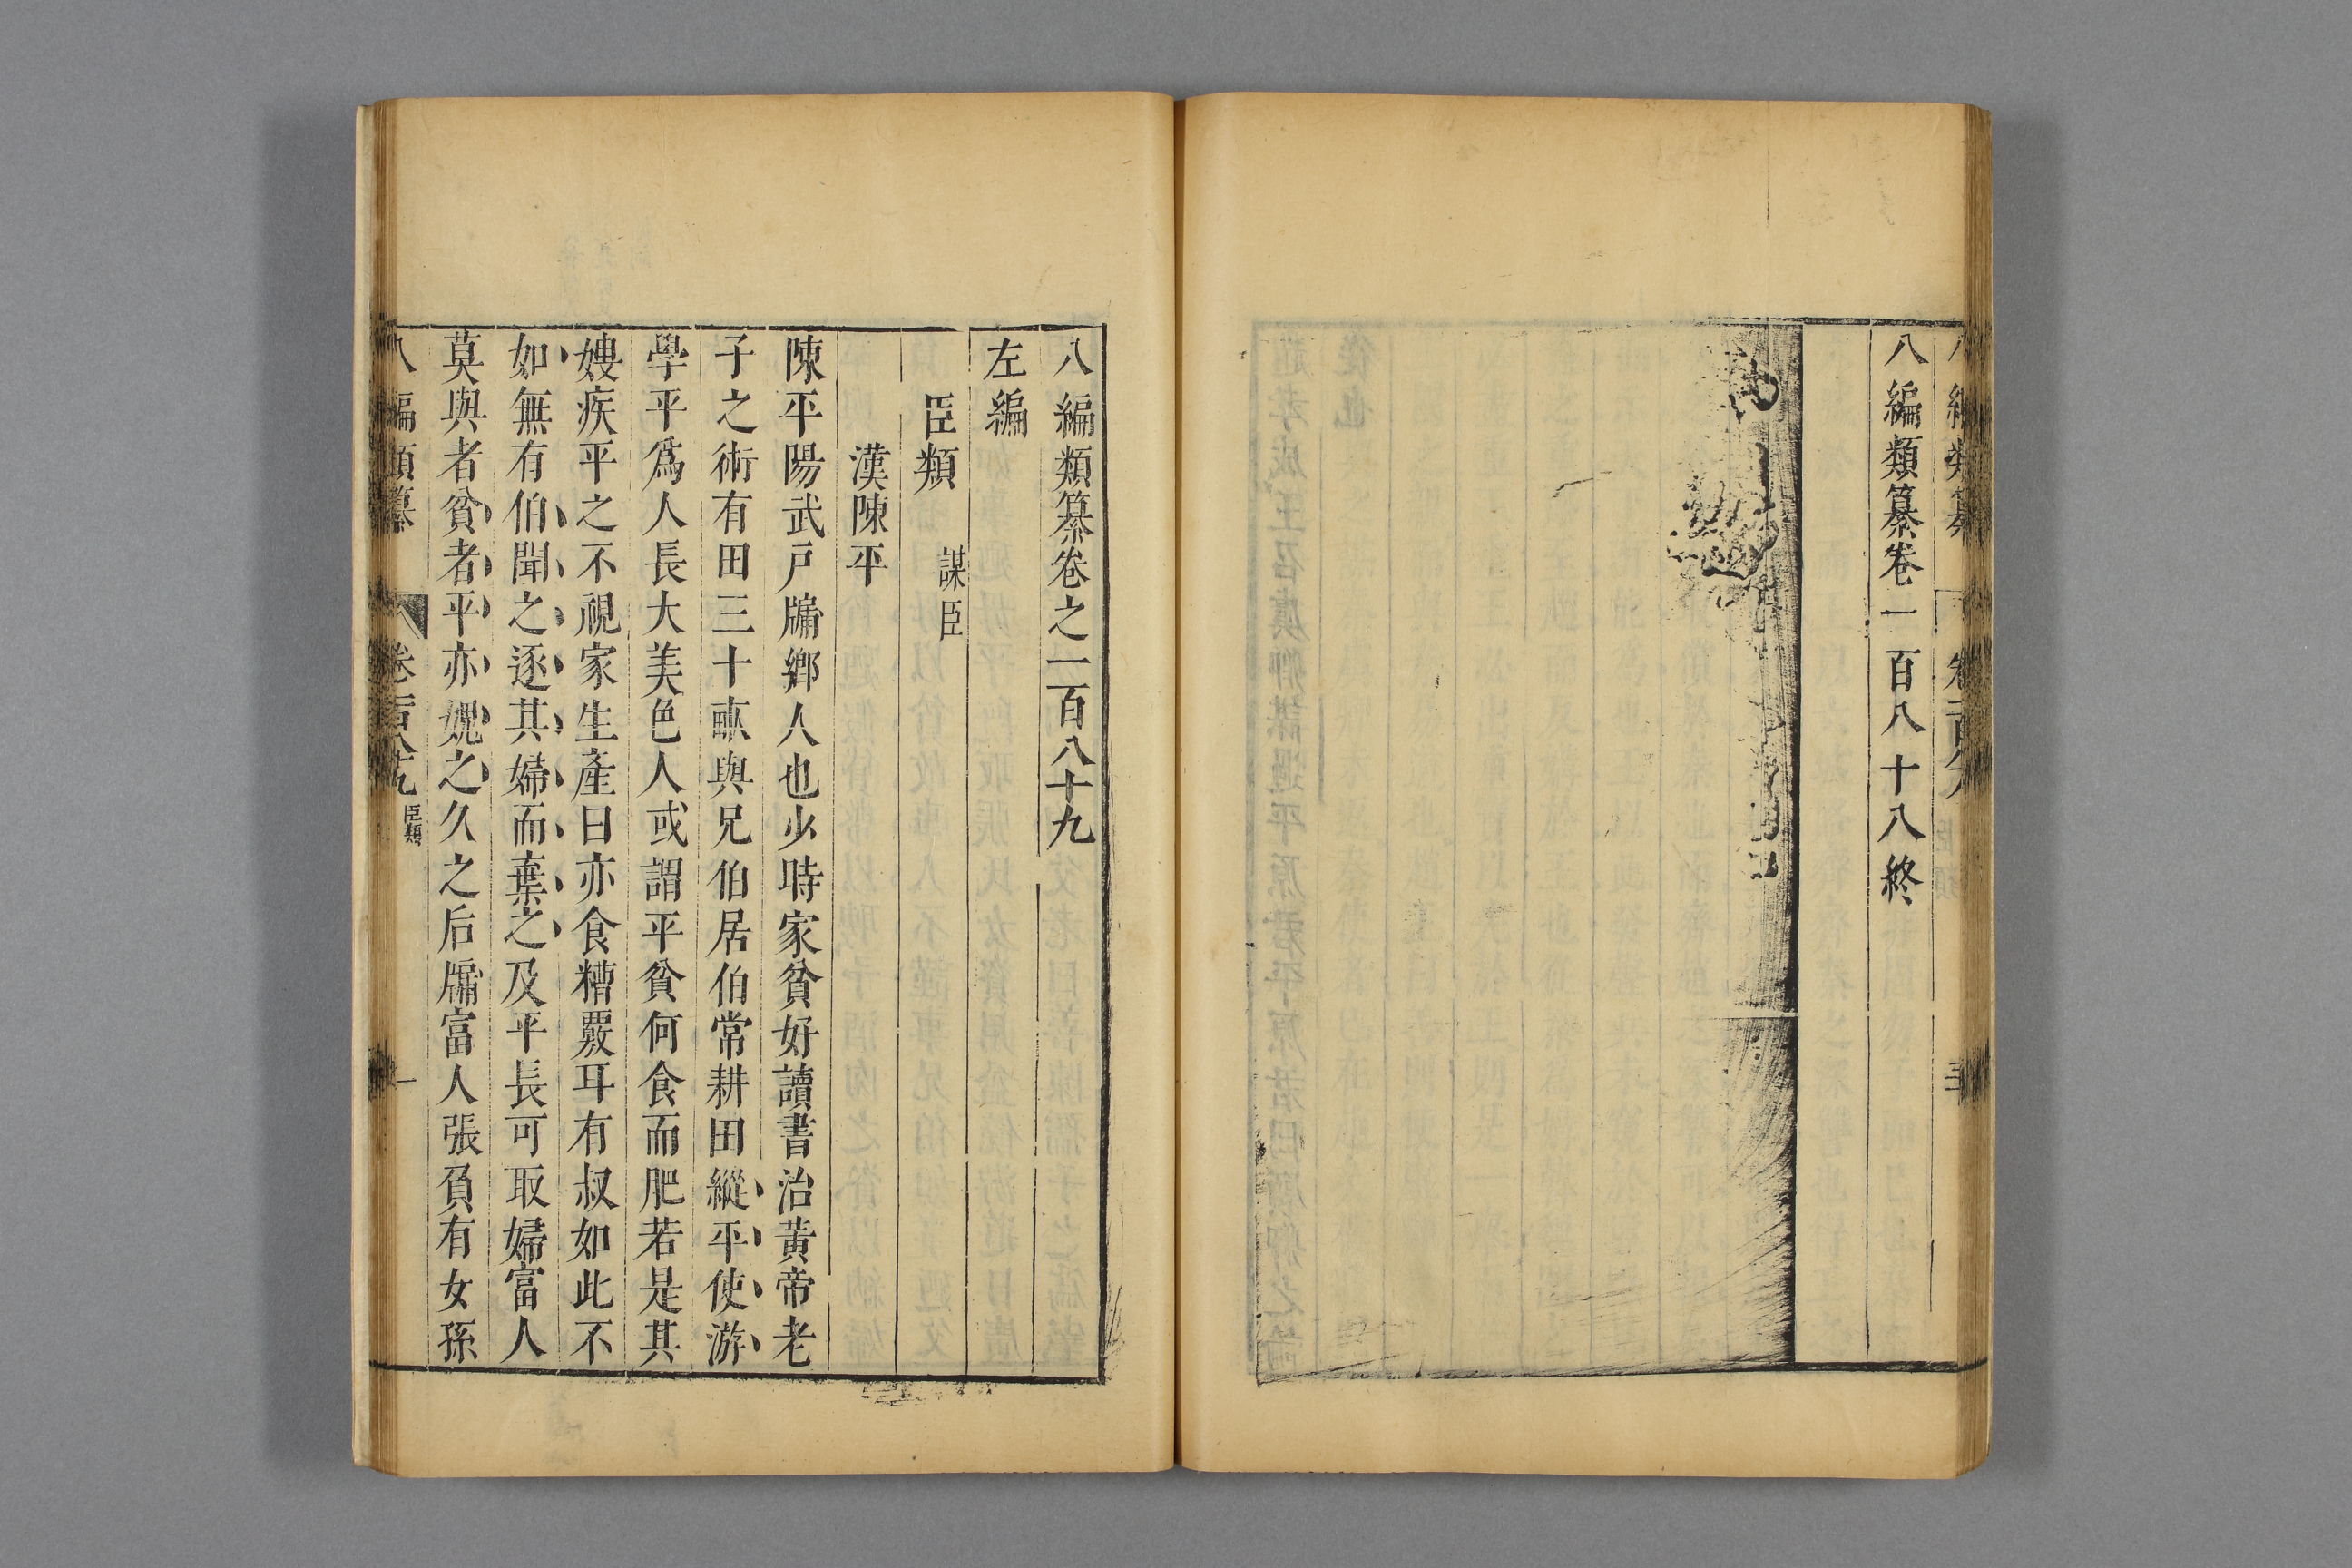 八編類纂卷一百八十八終
八編類纂卷之一百八十九
左編
臣類 謀臣
漢陳平
陳平陽武戶牖鄉人也少時家貧好讀書治黃帝老
子之術有田三十畝與兄伯居伯常耕田縱平使游
學平爲人長大美色人或謂平貧何食而肥若是其
嫂疾平之不視家生產曰亦食糟覈耳有叔如此不
如無有伯聞之逐其婦而棄之及平長可取婦富人
莫與者貧者平亦媿之久之后牖富人張負有女孫
八編類纂 卷一百八十九 臣類 一